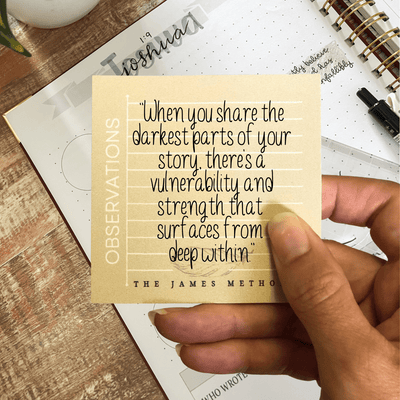 1:9
Joshua
"When you share the
darkest parts of your
story, there's a
vulnerability and
strength that
surfaces from
deep within."
OBSERVATIONS
THE JAMES METHO
WHO WROTE